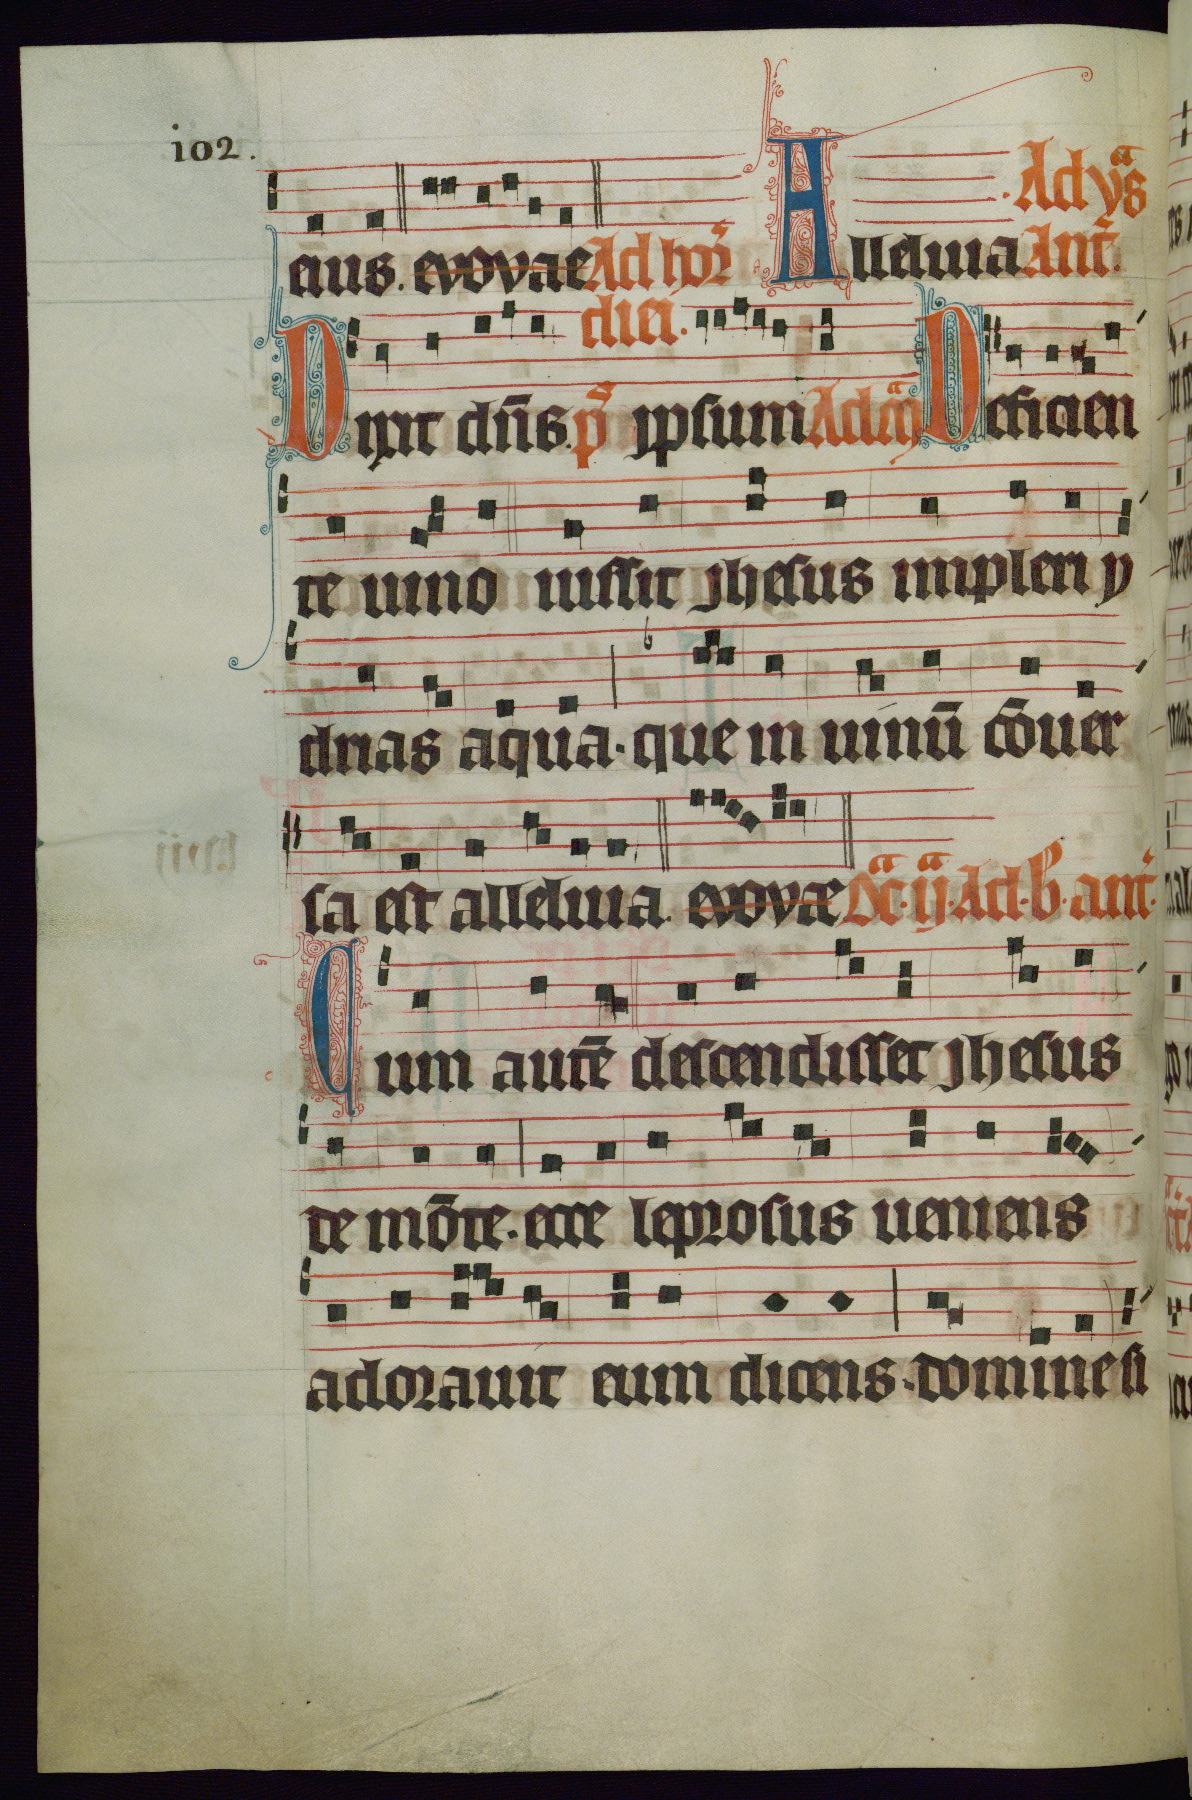 102.
eius. evovae Ad hor̃ Alleluia Ad vp̃s Ant̃.
diei.
Dixit dñs. p̃ ypsum Ad Deficien
te uino iussit jhesus impleri y
drias aqua. que in uinū cōuer
sa est alleluia. evovae Oct̃. ij. Ad. b. ant̃.
Cum autē descendisset jhesus
de mōte. ecce leprosus ueniens
adorauit eum dicens. domine si